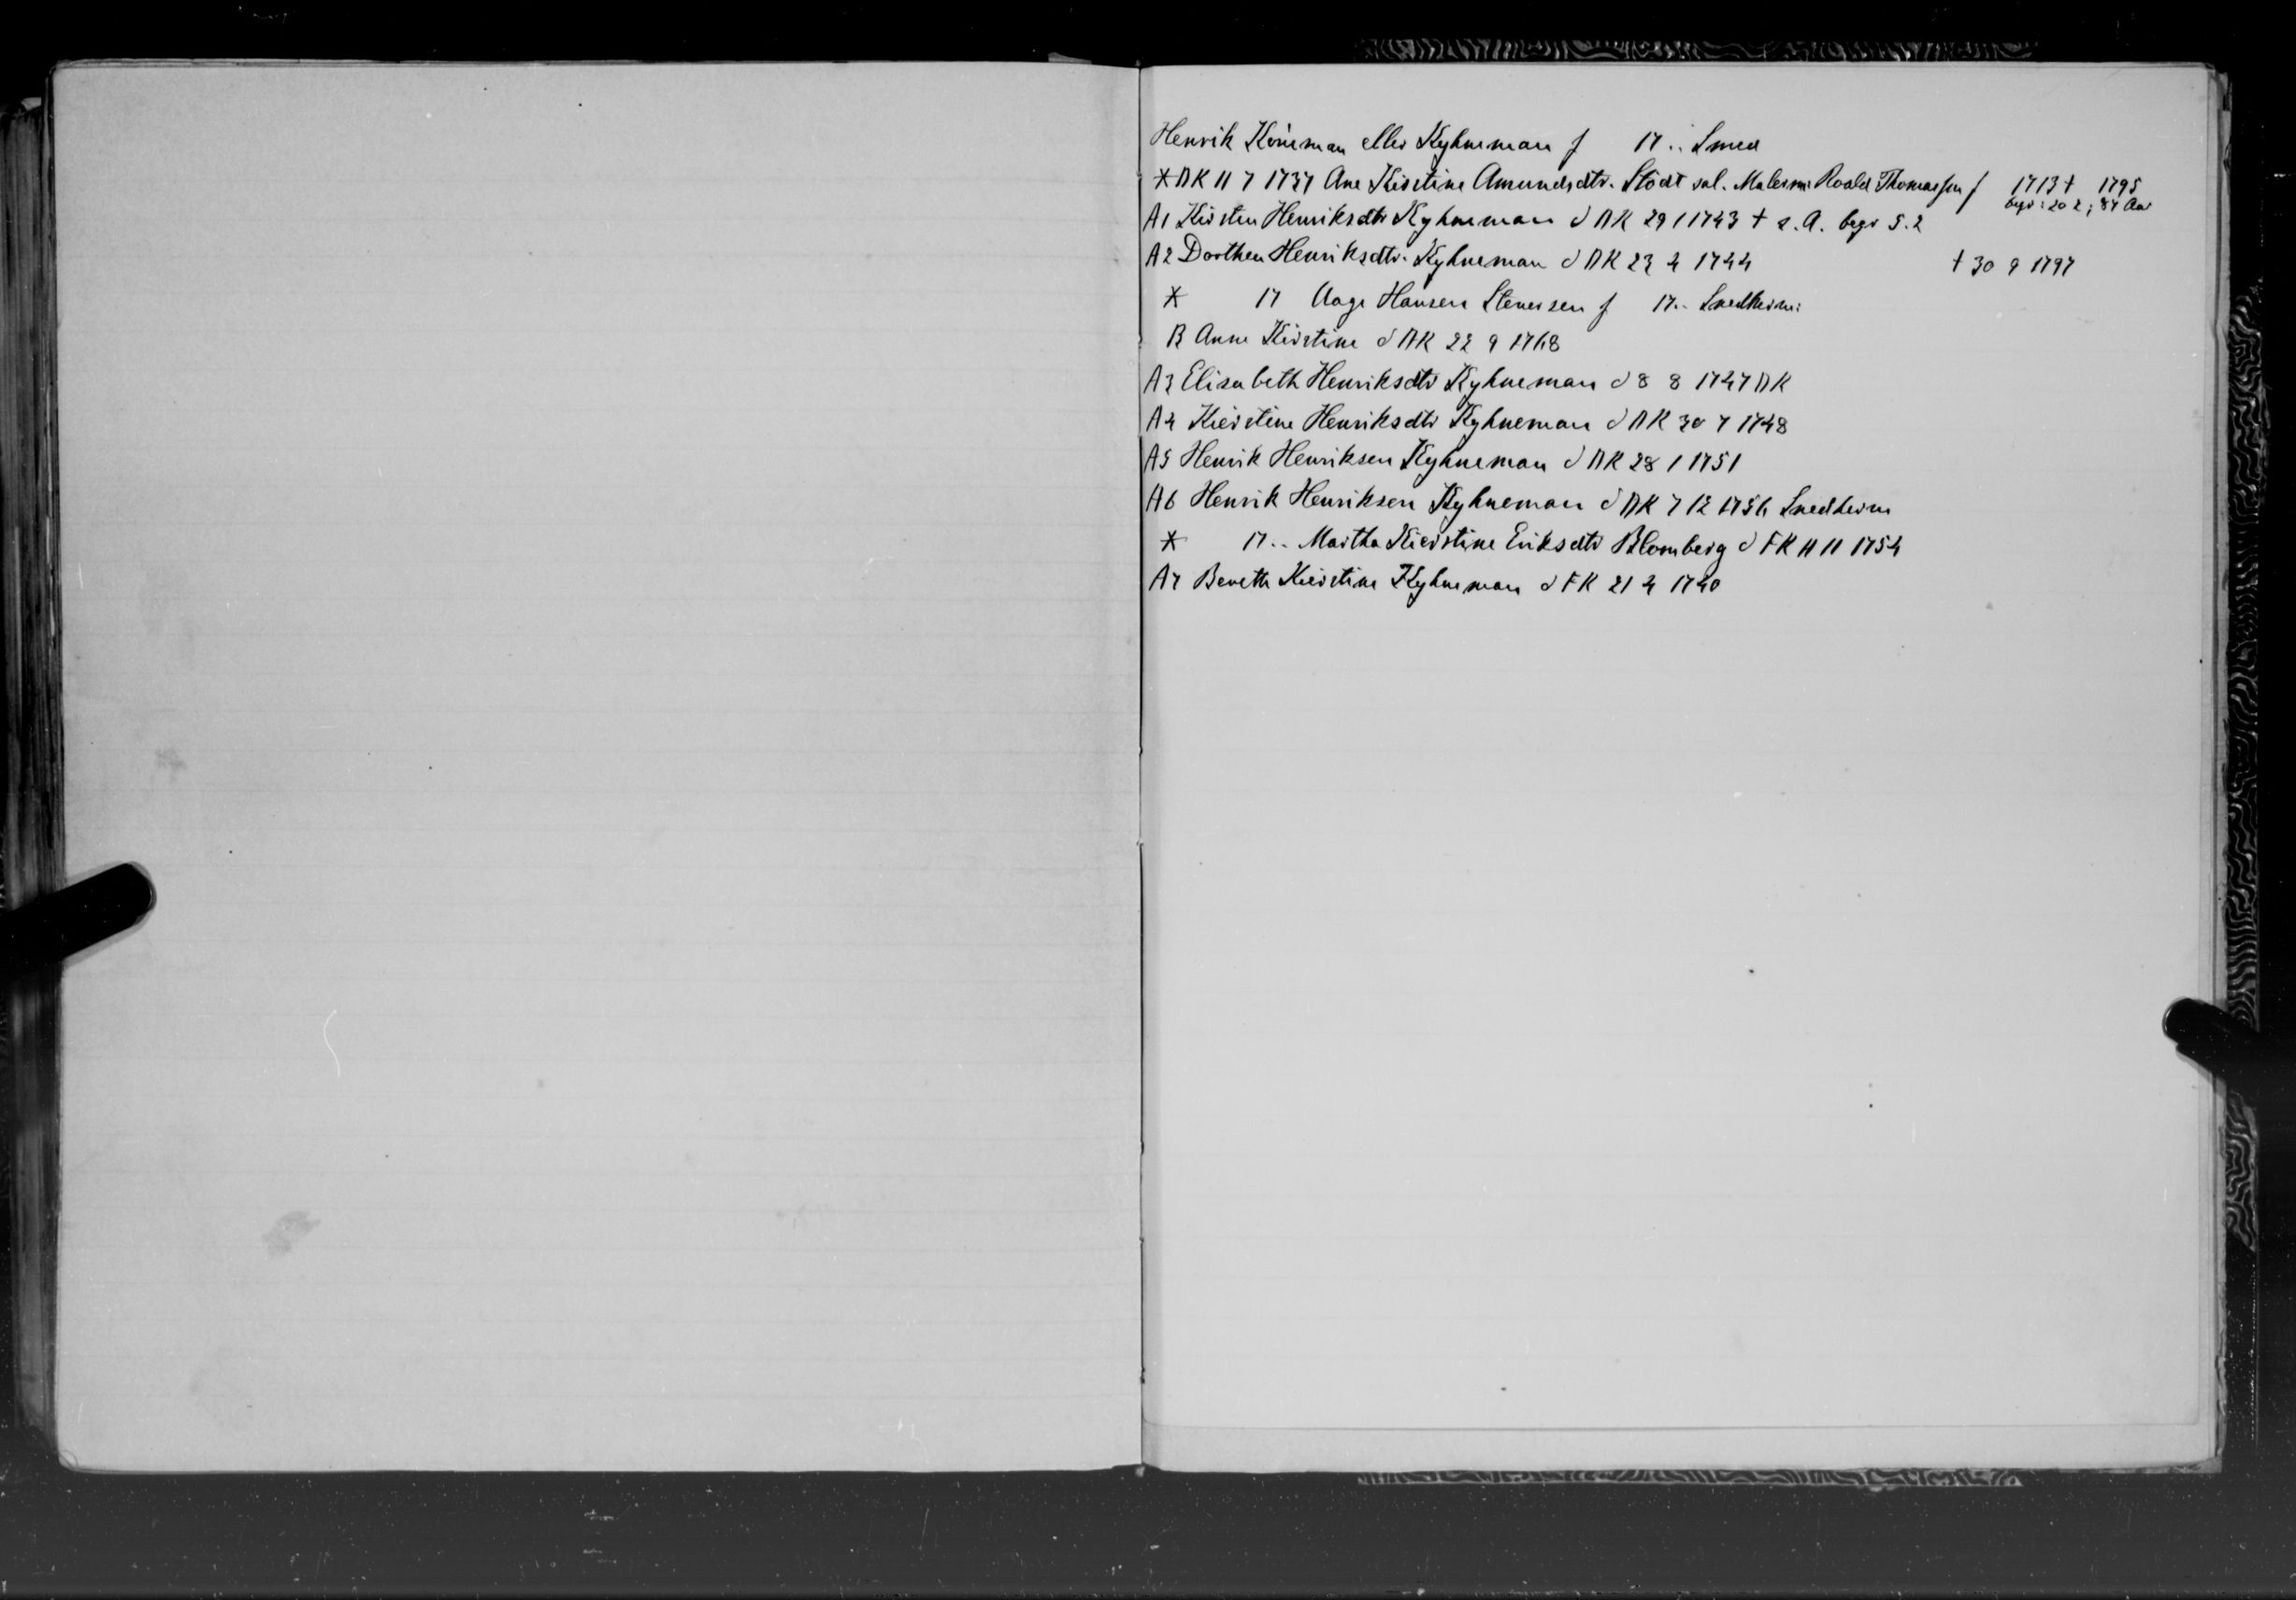 Henrik Köneman eller Kyhneman f 17.. Smed
* DK 11 7 1737 Ane Kirstine Amundsdtr. Stödt sal. Malerm: Roald Thomassen f 1713 † 1795
begr: 20 2; 84 Aar
A1 Kirsten Henriksdtr Kyhneman d DK 29 1 1743 † s. A. begr 5.2
A2 Dorthea Henriksdtr. Kyhneman d DK 23 4 1744 † 30 9 1797
* 17 Aage Hansen Stenersen f 17.. Snedkerm:
B Anne Kirstine d DK 22 9 1768
A3 Elisabeth Henriksdtr Kyhneman d 8 8 1747 DK
A4 Kirstine Henriksdtr Kyhneman d DK 30 7 1748
A5 Henrik Henriksen Kyhneman d DK 28 1 1751
A6 Henrik Henriksen Kyhneman d DK 7 12 1756 Snedkerm
* 17.. Martha Kierstine Eriksdtr Blomberg d FK 11 11 1754
A7 Bereth Kierstine Kyhneman d FK 21 4 1740